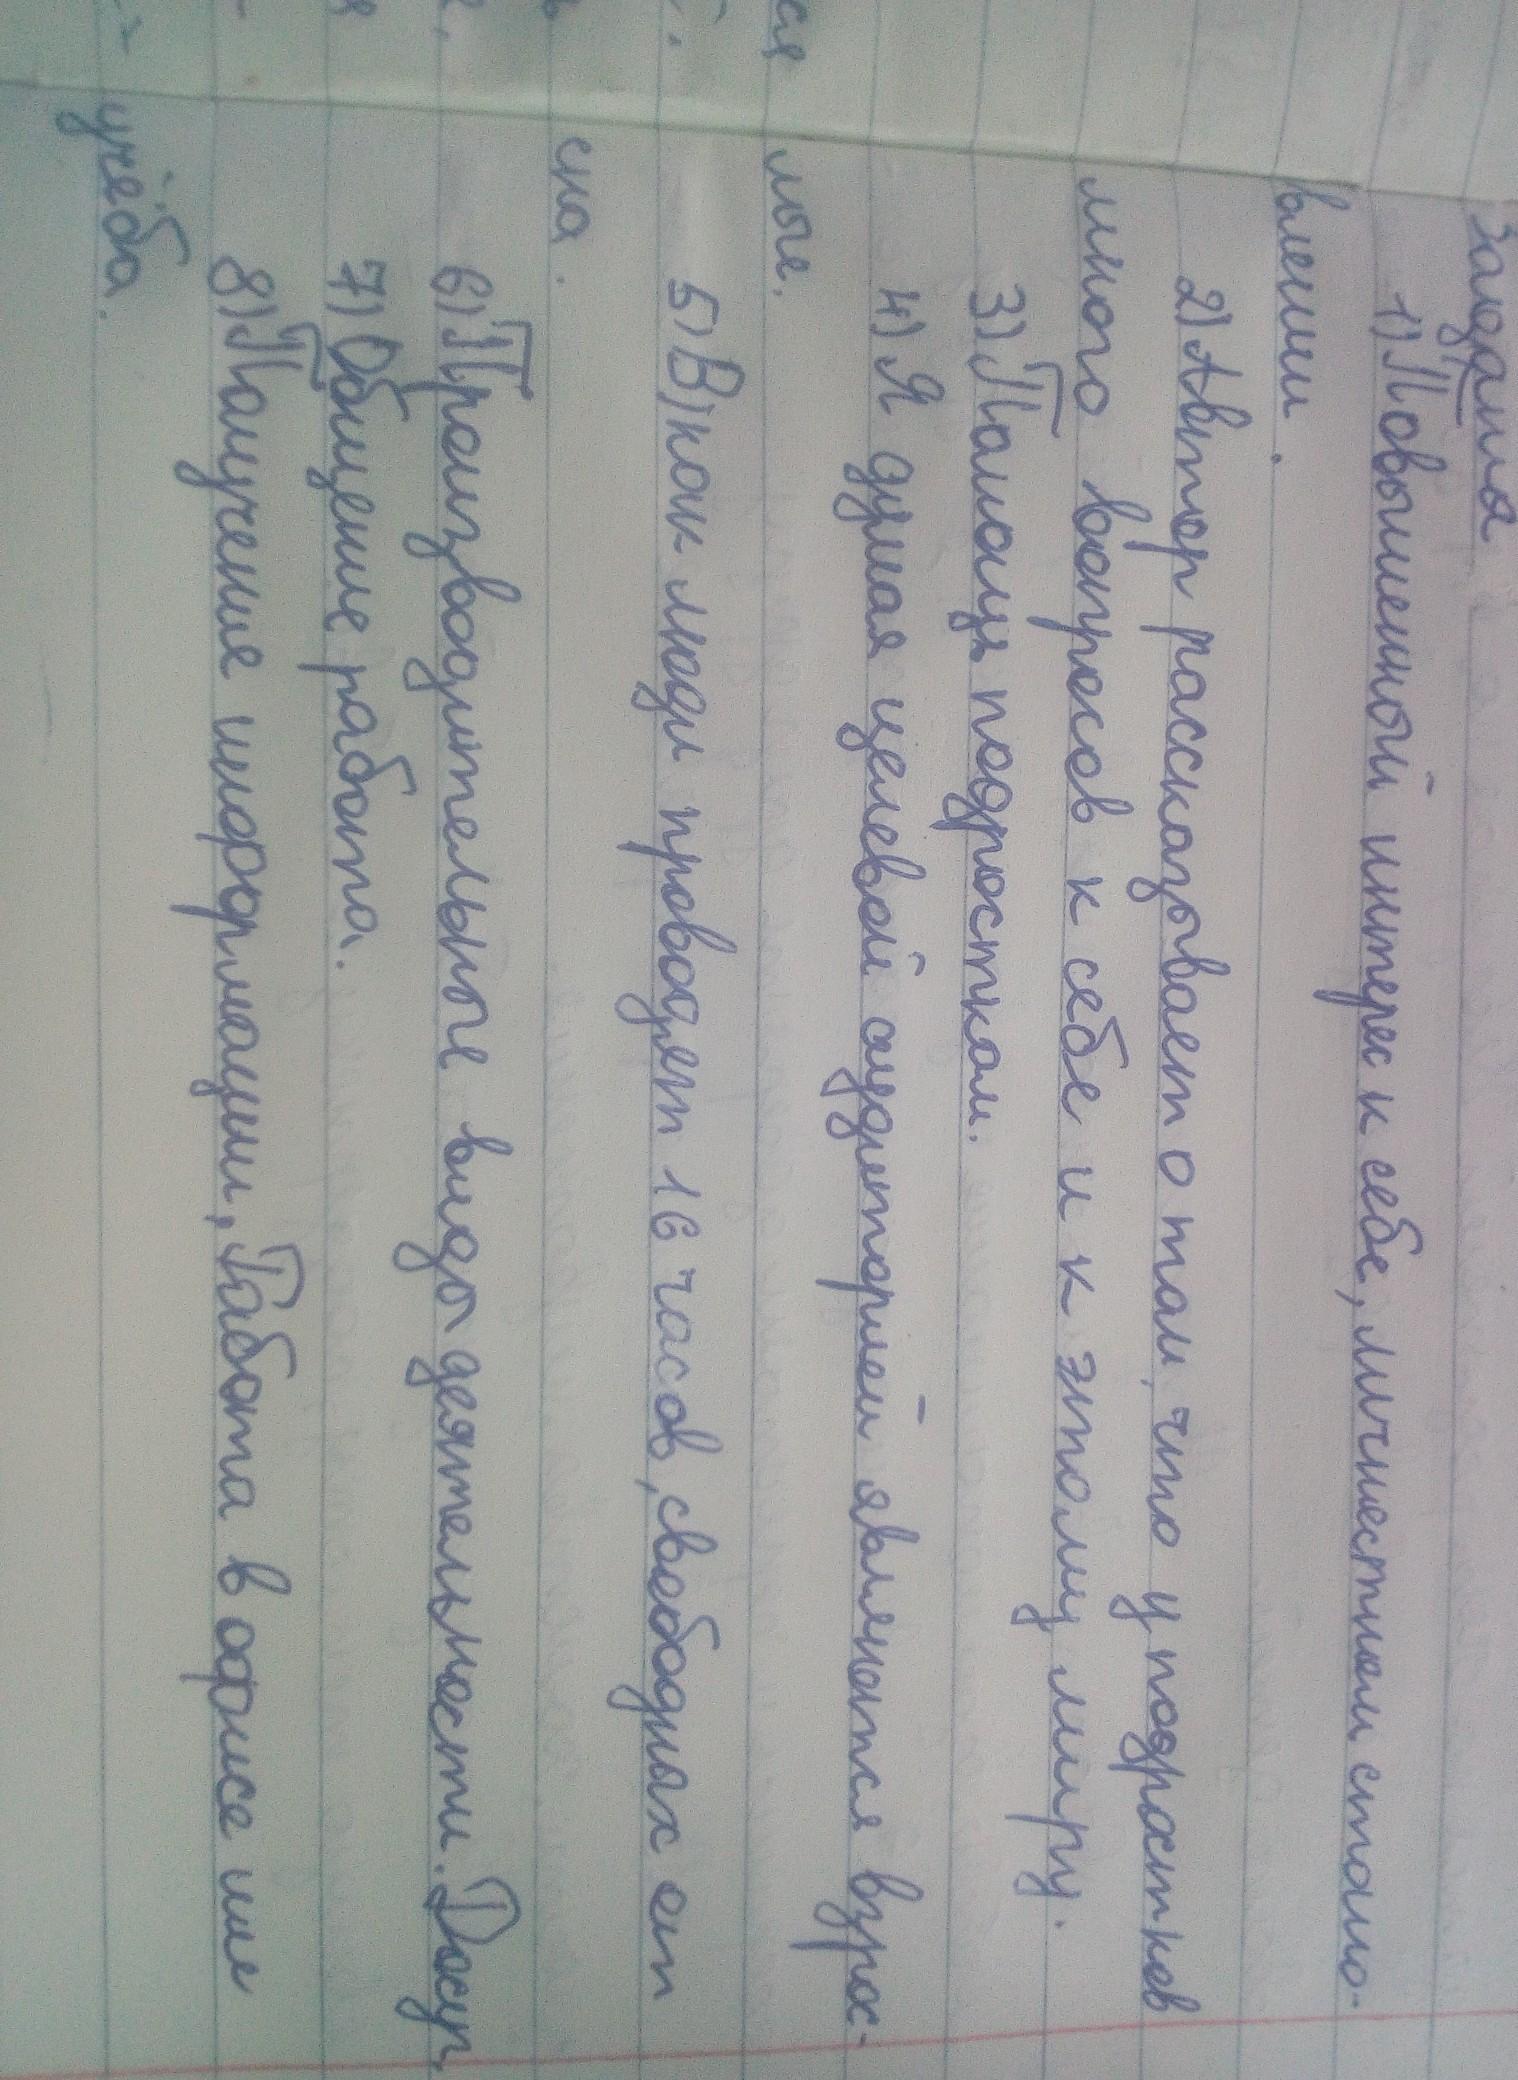 Задания
1) Повышенный интерес к себе, личностном стано-
влении.
2) Автор рассказывает о том, что у подростков
много вопросов к себе и к этому миру.
3) Помощь подросткам.
4) Я думая целевой аудиторией являются взрос-
лые.
5) В) как люди проводят 16 часов, свободных от
сна.
6) Производительные виды деятельности. Досуг.
7) Общение, работа.
8) Получение информации, Работа в офисе или
учёба.